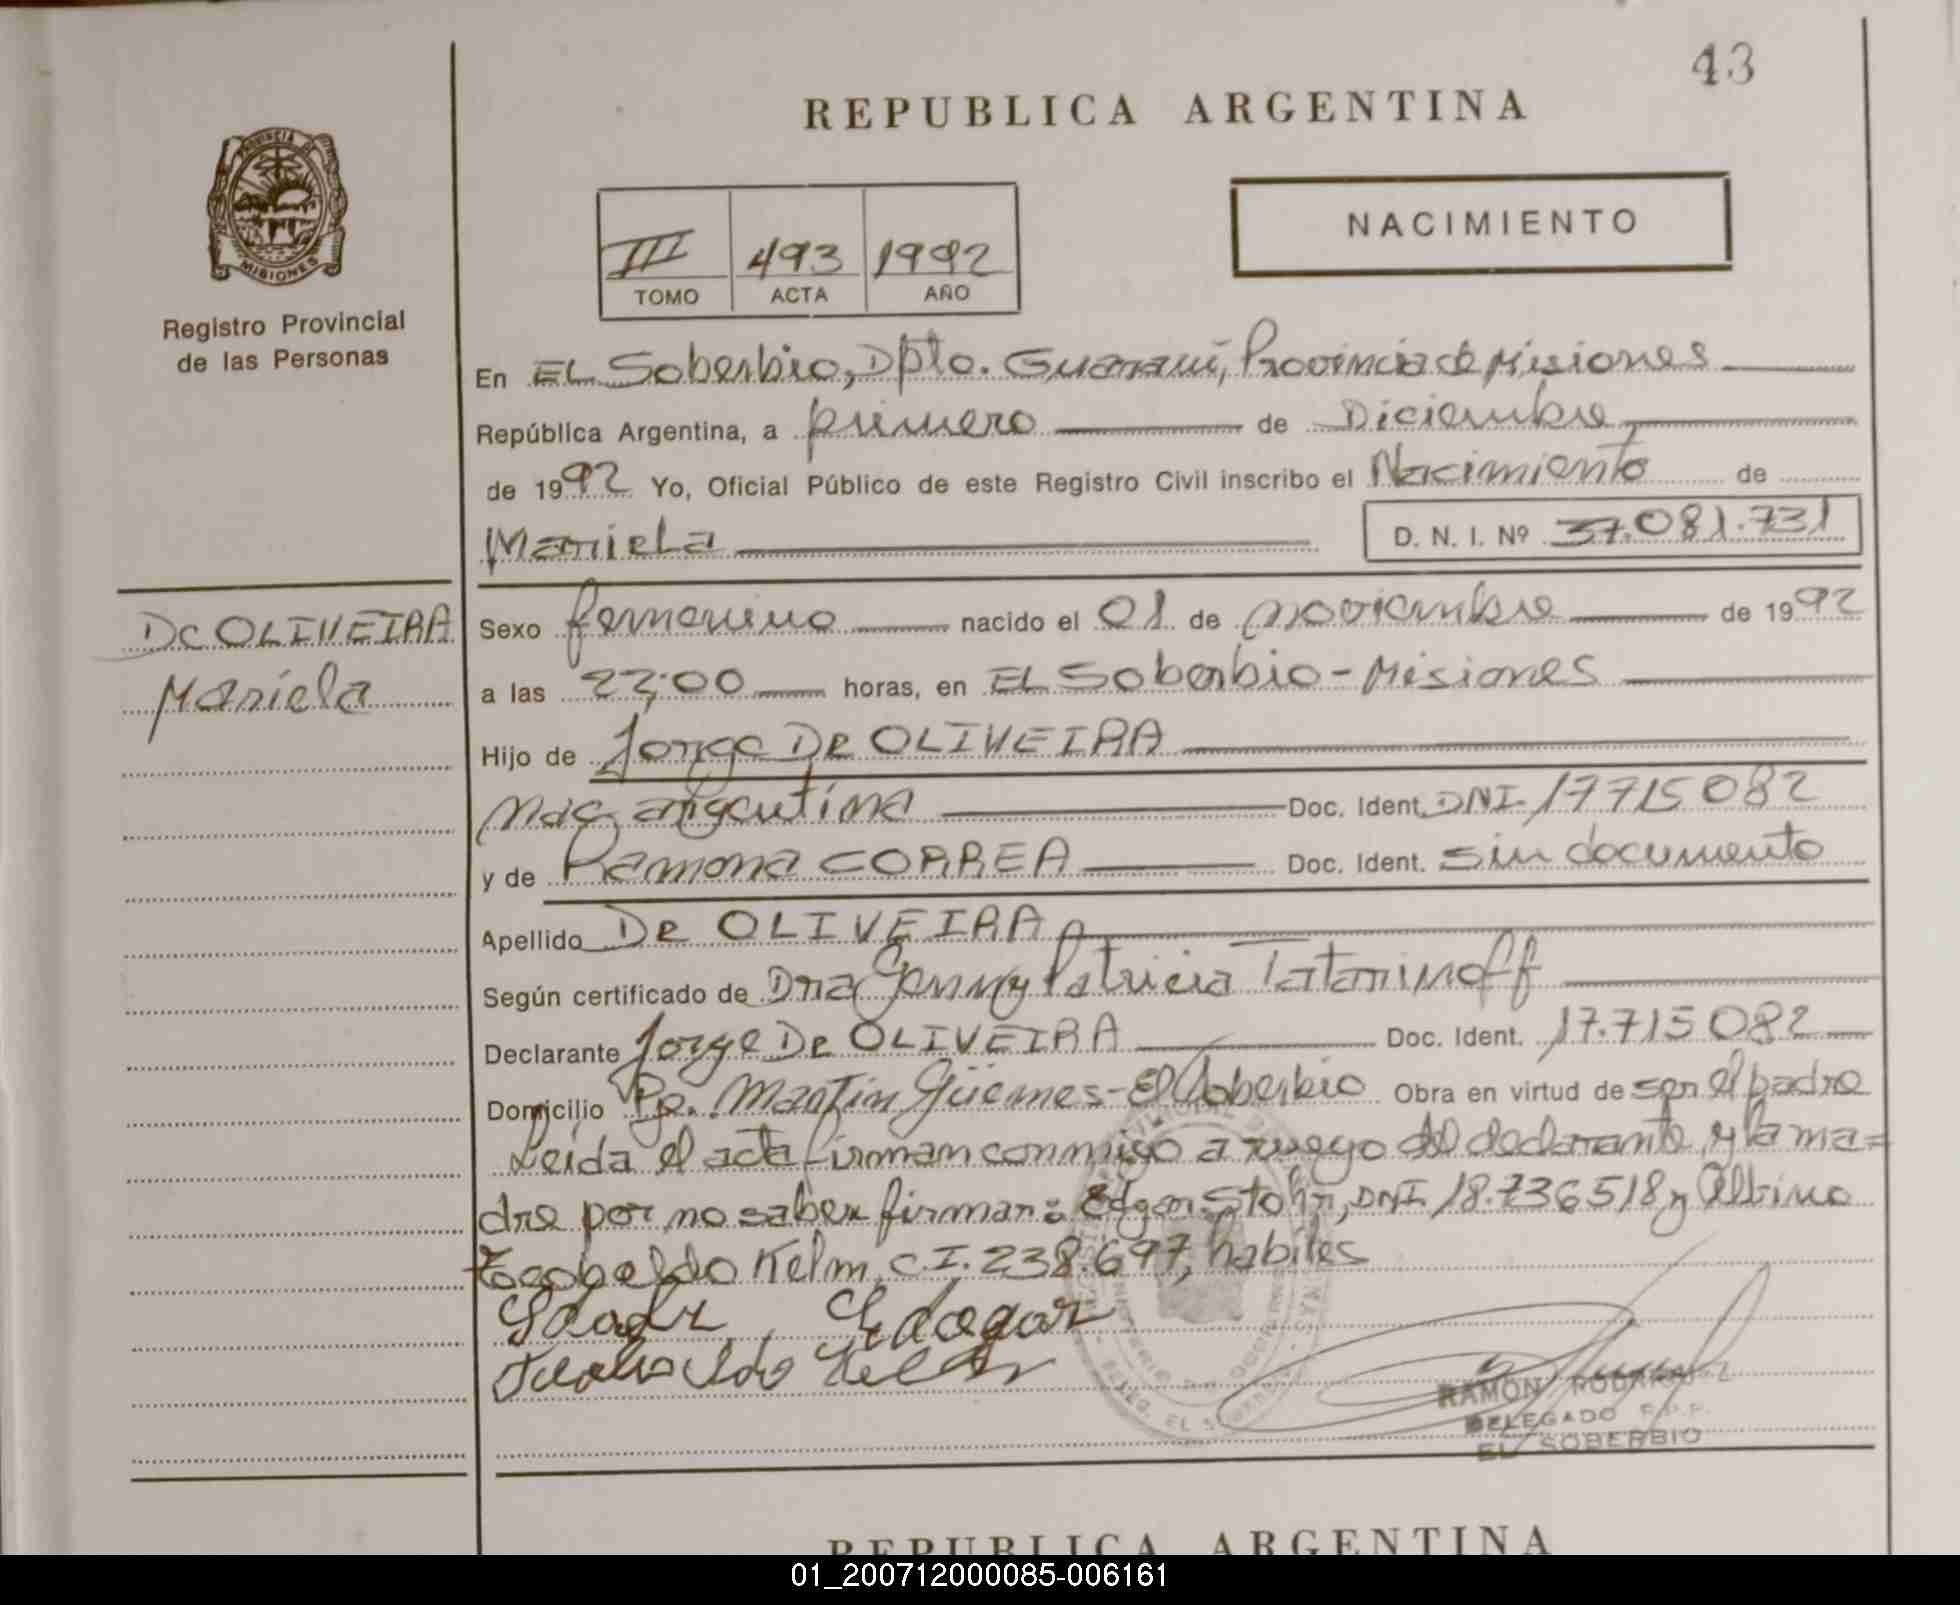 43
REPUBLICA ARGENTINA
PROVINCIA DE
MISIONES
Registro Provincial
de las Personas
III 493 1992
TOMO ACTA AÑO
NACIMIENTO
En EL Soberbio, Dpto. Guaraní, Provincia de Misiones
República Argentina, a primero de Diciembre
de 1992 Yo, Oficial Público de este Registro Civil inscribo el Nacimiento de
Mariela D. N. I. Nº 37.081.731
De OLIVEIRA
Mariela
Sexo femenino nacido el 01 de noviembre de 1992
a las 22:00 horas, en EL Soberbio - Misiones
Hijo de Jorge De OLIVEIRA
Nac. argentina Doc. Ident. DNI. 17715082
y de Ramona CORREA Doc. Ident. sin documento
Apellido De OLIVEIRA
Según certificado de Dra Genny Patricia Tatarinoff
Declarante Jorge De OLIVEIRA Doc. Ident. 17.715082
Domicilio Pje. Martín Güemes - El Soberbio Obra en virtud de ser el padre
Leída el acta firman conmigo a ruego del declarante y la ma=
dre por no saber firmar: Edgar Stohr, DNI 18.736518 y Albino
Teobaldo Kelm, C.I. 238.697, habiles
Edogar
RAMON RODRIGUEZ
DELEGADO R.P.P.
EL SOBERBIO
REPUBLICA ARGENTINA
01_200712000085-006161